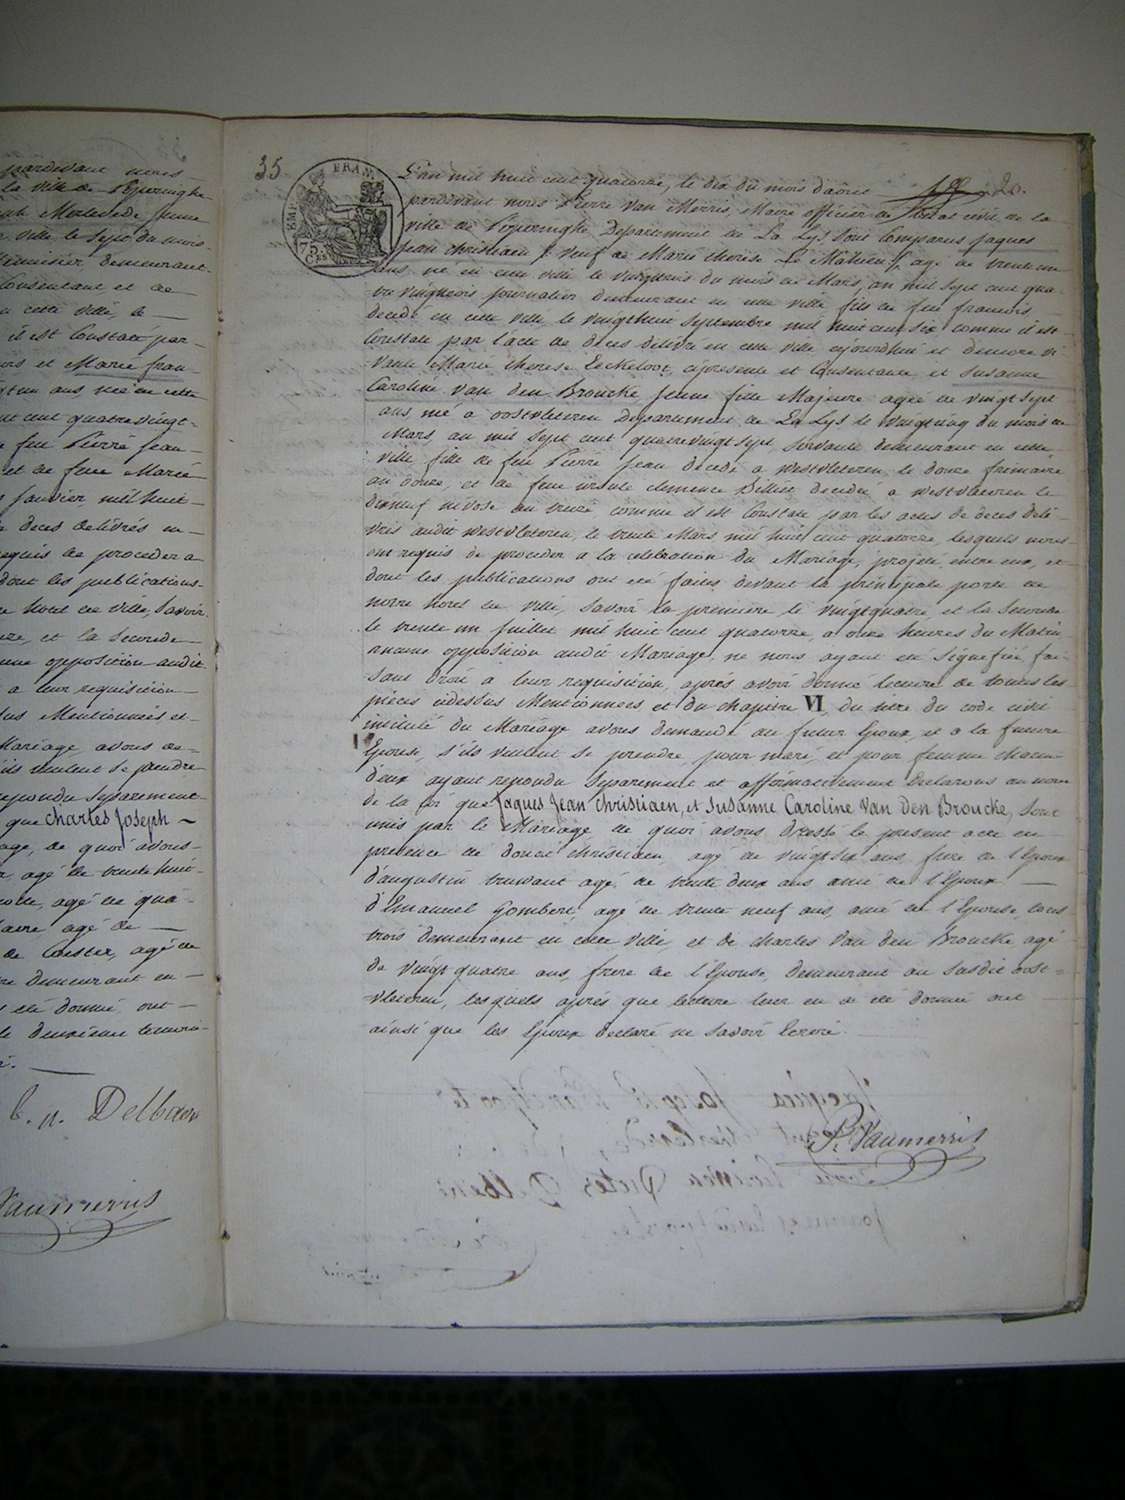 pardevant nous
la ville de Poperinghe
Merlevede jeune
ville le Sept du mois
Menuisier demeurant
Consentant et de
cette ville, le
il est Constaté par
et Marie fran-
un ans, née en cette
cent quatrevingt-
feu Pierre Jean
et de feue Marie
Janvier mil huit
deces delivrés en
requis de proceder a
dont les publications
hotel en ville, Savoir
et la seconde
une opposition audit
a leur requisition
Mentionnées et
Mariage avons de-
ils veulent se prendre
repondu Separement
que Charles Joseph
age, de quoi avons
agé de trente huit
agé de qua-
agé de
de Coster, agé de
demeurant en
été donné ont
le deuxieme temoin
b. n. Delbaere
Vanmerris
35
EMP FRAN
75 Ces
20.
L'an mil huit cent quatorze, le dix du mois d'aout
pardevant nous Pierre Van Merris, Maire officier de l'etat civil de la
ville de Poperinghe, Departement de La Lys Sont Comparus Jaques
Jean Christiaen veuf de Marie therese Le Mahieu, agé de trente un
ans, né en cette ville le vingttrois du mois de Mars, an mil sept cent qua-
tre vingttrois journalier demeurant en cette ville fils de feu francois
decedé en cette ville le vingthuit Septembre mil huit cent six comme il est
Constaté par l'acte de deces delivré en cette ville ajourdhui et d'encore vi-
vante Marie therese Eeckeloot, cipresente et Consentante et Susanne
Caroline Van den Broucke Jeune fille Majeure agée de vingt sept
ans, née a oostvleteren Departement de La Lys le vingtcinq du mois de
Mars, an mil sept cent quatrevingt sept, Servante demeurant en cette
ville fille de feu Pierre Jean decedé a westvleteren le douze frimaire
an douze, et de feue ursule clemence Dillies decedée a westvleteren le
dixneuf nivose an treize comme il est Constaté par les actes de deces deli-
vrés audit westvleteren, le trente Mars mil huit cent quatorze, lesquels nous
ont requis de proceder a la celebration du Mariage, projeté entre eux, et
dont les publications ont été faites devant la principale porte de
notre hotel en ville, Savoir la premiere le vingtquatre, et la Seconde
le trente un Juillet mil huit cent quatorze, a onze heures du Matin
aucune opposition audit Mariage, ne nous ayant été Signefiée, fai-
sant droit a leur requisition, après avoir donné lecture de toutes les
pieces cidessus Mentionnées et du chapitre VI, du titre du code civil
intitulé du Mariage avons demandé au futur Epoux, et a la future
Epouse, s'ils veulent se prendre pour mari, et pour femme chacun
d'eux ayant repondu Separement et affirmativement Declarons au nom
de la loi que Jaques Jean Christiaen, et Susanne Caroline Van Den Broucke, Sont
unis par le Mariage, de quoi avons Dressé le present acte en
presence de Christiaen, agé de vingtsix ans, frere de l'Epoux
d'augustin truwant agé de trente deux ans ami de l'Epoux
d'Emanuel Gombert, agé de trente neuf ans, ami de l'Epouse, tous
trois demeurant en cette ville, et de charles Van den Broucke agé
de vingt quatre ans, frere de l'Epouse demeurant au Susdit oost-
vleteren, lesquels après que lecture leur en a été donné ont
ainsi que les Epoux declaré ne Savoir Ecrire.
P. Vanmerris